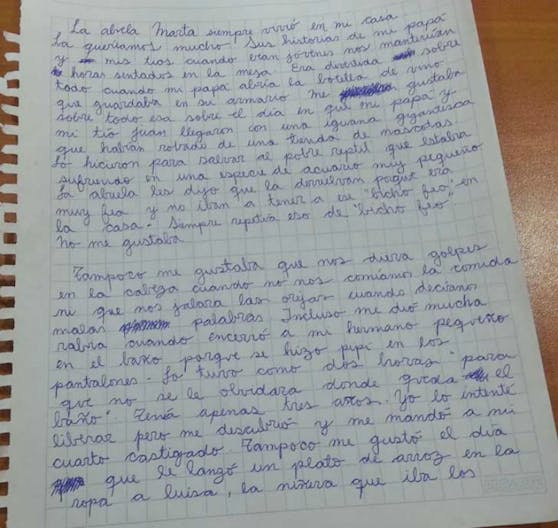 La abuela Marta siempre vivió en mi casa.
La queríamos mucho. Sus historias de mi papá
y mis tíos cuando eran jóvenes nos mantenían
horas sentados en la mesa. Era divertida sobre
todo cuando mi papá abría la botella de vino
que guardaba en su armario. Me gustaba
sobre todo esa sobre el día en que mi papá y
mi tío Juan llegaron con una iguana gigantesca
que habían robado de una tienda de mascotas.
Lo hicieron para salvar al pobre reptil que estaba
sufriendo en una especie de acuario muy pequeño
La abuela les dijo que la devuelvan porque era
muy fea y no iban a tener a ese "bicho feo" en
la casa. Siempre repetía eso de "bicho feo"
No me gustaba
Tampoco me gustaba que nos diera golpes
en la cabeza cuando no nos comíamos la comida
ni que nos jalara las orejas cuando decíamos
malas palabras. Incluso me dió mucha
rabia cuando encerró a mi hermano pequeño
en el baño porque se hizo pipí en los
pantalones. Lo tuvo como dos horas "para
que no se le olvidara donde queda el
baño". Tenía apenas tres años. Yo lo intenté
liberar pero me descubrió y me mandó a mi
cuarto castigado. Tampoco me gustó el día
que le lanzó un plato de arroz en la
ropa a Luisa, la niñera que iba los